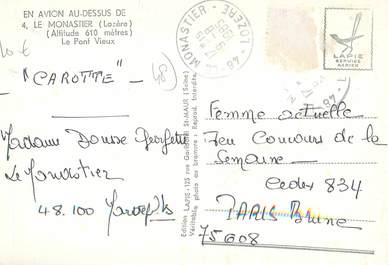 EN AVION AU-DESSUS DE
4. LE MONASTIER (Lozère)
(Altitude 610 mètres)
Le Pont Vieux
10 €
"CAROTTE"
48
Madame Douze
Le Monastier
48.100
Edition LAPIE - 125 rue St-MAUR (Seine)
Véritable photo au bromure - Reprod. Interdite
MONASTIER - LOZERE
48
LAPIE
SERVICE
AERIEN
Femme actuelle
Jeu Concours de la
Semaine
Cedex 834
PARIS Brune
75608